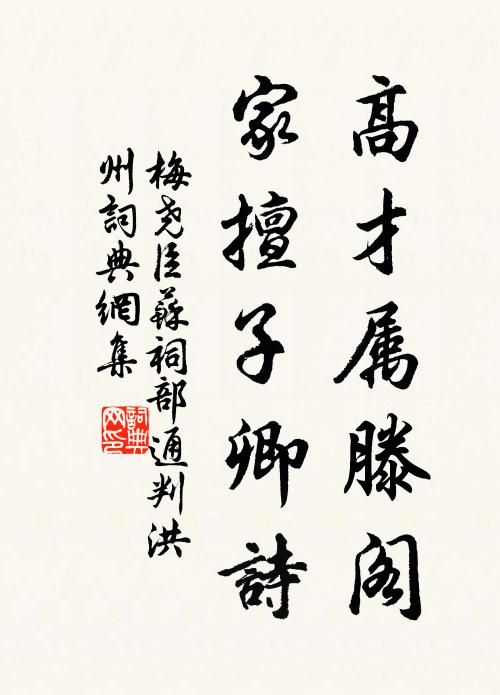 高才属滕阁
家擅子卿詩
梅尧臣蘇祠部通判洪
州詞典網集
詞典
网印